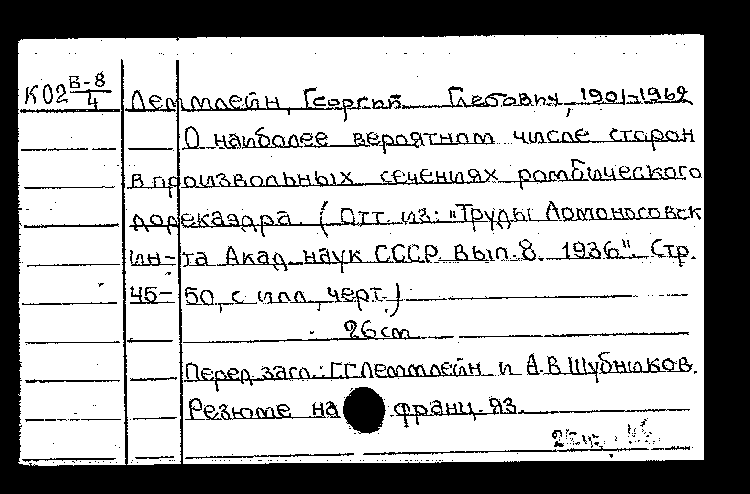 К02 В-8/4 Леммлейн, Георгий Глебович, 1901-1962
О наиболее вероятном числе сторон
в произвольных сечениях ромбического
додекаэдра. (Отт. из: "Труды Ломоносовск
ин-та Акад. наук СССР. Вып. 8. 1936". Стр.
45-50, с илл., черт.)
26 cm
Перед загл.: Г.Г.Леммлейн и А.В.Шубников.
Резюме на франц. яз.